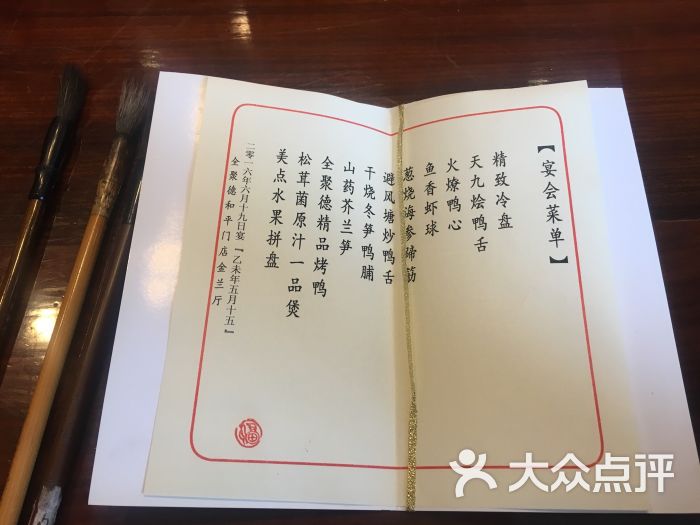 【宴会菜单】
精致冷盘
天九烩鸭舌
火燎鸭心
鱼香虾球
葱烧海参蹄筋
避风塘炒鸭舌
干烧冬笋鸭脯
山药芥兰笋
全聚德精品烤鸭
松茸菌原汁一品煲
美点水果拼盘
二零一六年六月十九日宴『乙未年五月十五』
全聚德和平门店金兰厅
福
大众点评